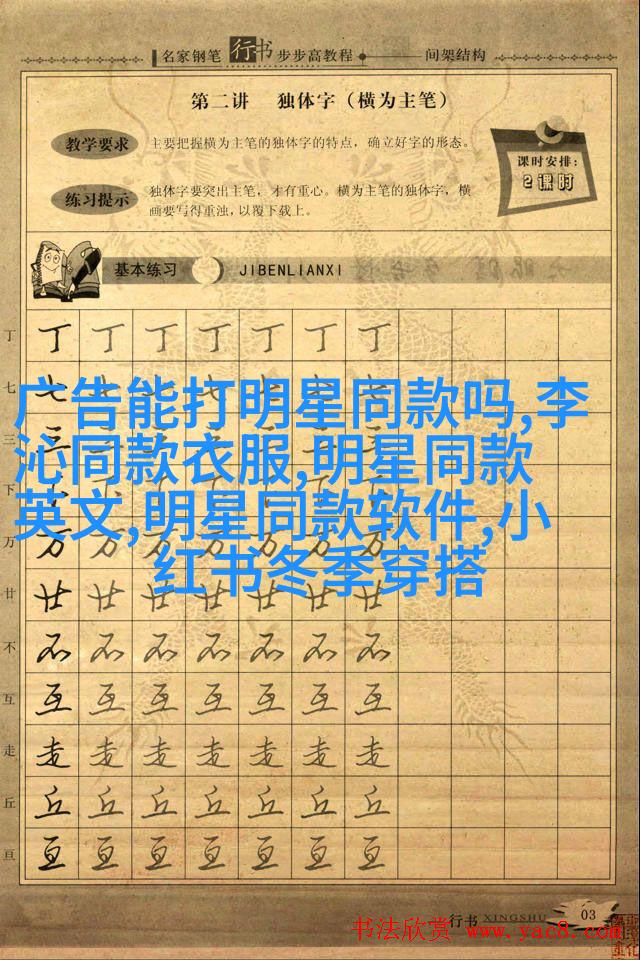 名家钢笔行书步步高教程 间架结构
第二讲 独体字（横为主笔）
教学要求 主要把握横为主笔的独体字的特点，确立好字的形态。
课时安排：
2课时
练习提示 独体字要突出主笔，才有重心。横为主笔的独体字，横
画要写得重浊，以覆下载上。
基本练习 JIBENLIANXI
丁 丁 丁 丁 丁 丁 丁 丁
七 七
广告能打明星同款吗,李
三
沁同款衣服,明星同款
下
英文,明星同款软件,小
万 万 万 万 万 万 万 万
红书冬季穿搭
廿 廿 廿 廿 廿 廿 廿 廿
不 不 不 不 不 不 不 不
互 互 互 互 互 互 互 互
走 走 走 走 走 走 走 走
丘 丘 丘 丘 丘 丘 丘 丘
亘 亘 亘 亘 亘 亘 亘 亘
行书 XINGSHU 03
书法欣赏 www.yac8.com